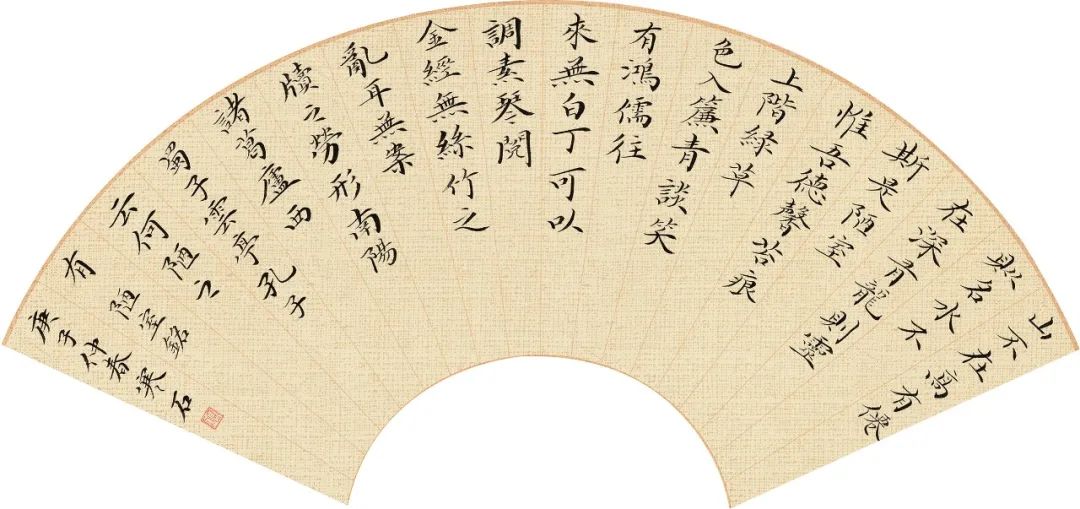 山不在高有僊
則名水不
在深有龍則靈
斯是陋室
惟吾德馨苔痕
上階緑草
色入簾青談笑
有鴻儒往
來無白丁可以
調素琴閱
金經無絲竹之
亂耳無案
牘之勞形南陽
諸葛廬西
蜀子雲亭孔子
云何陋之
有 陋室銘
庚子仲春寒石